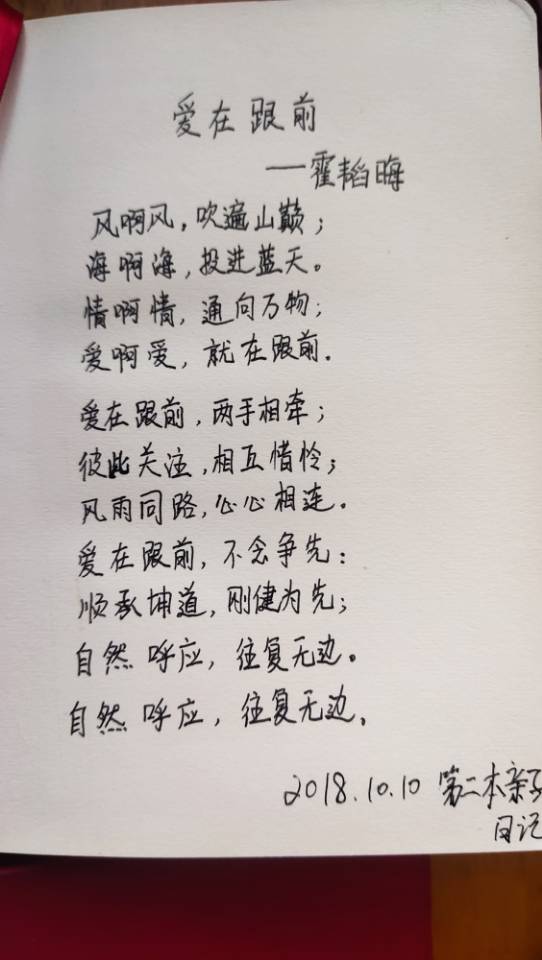 爱在跟前
——霍韬晦
风啊风，吹遍山巅；
海啊海，投进蓝天。
情啊情，通向万物；
爱啊爱，就在跟前.
爱在跟前，两手相牵；
彼此关注，相互惜怜；
风雨同路，心心相连。
爱在跟前，不念争先：
顺承坤道，刚健为先；
自然呼应，往复无边。
自然呼应，往复无边。
2018.10.10 第二本亲子
日记